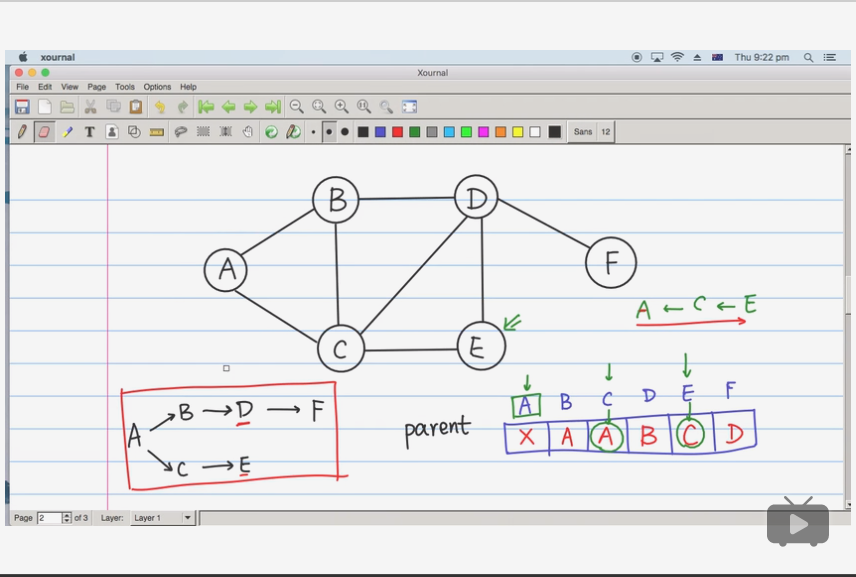 xournal
Thu 9:22 pm
Xournal
File Edit View Page Tools Options Help
T
Sans 12
B D
A F
A ← C ← E
C E
A B C D E F
parent X A A B C D
B → D → F
A
C → E
Page 2 of 3 Layer: Layer 1